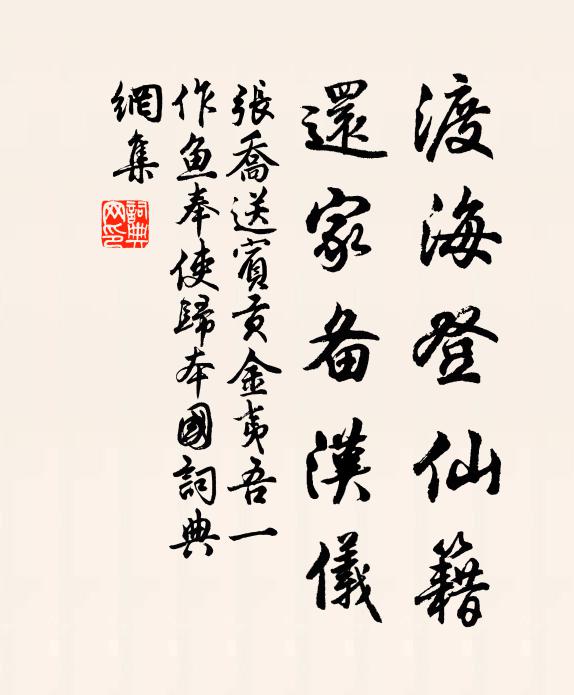 渡海登仙籍
還家备漢儀
張喬送賓貢金夷吾一
作鱼奉使歸本國詞典
網集
詞典
网印